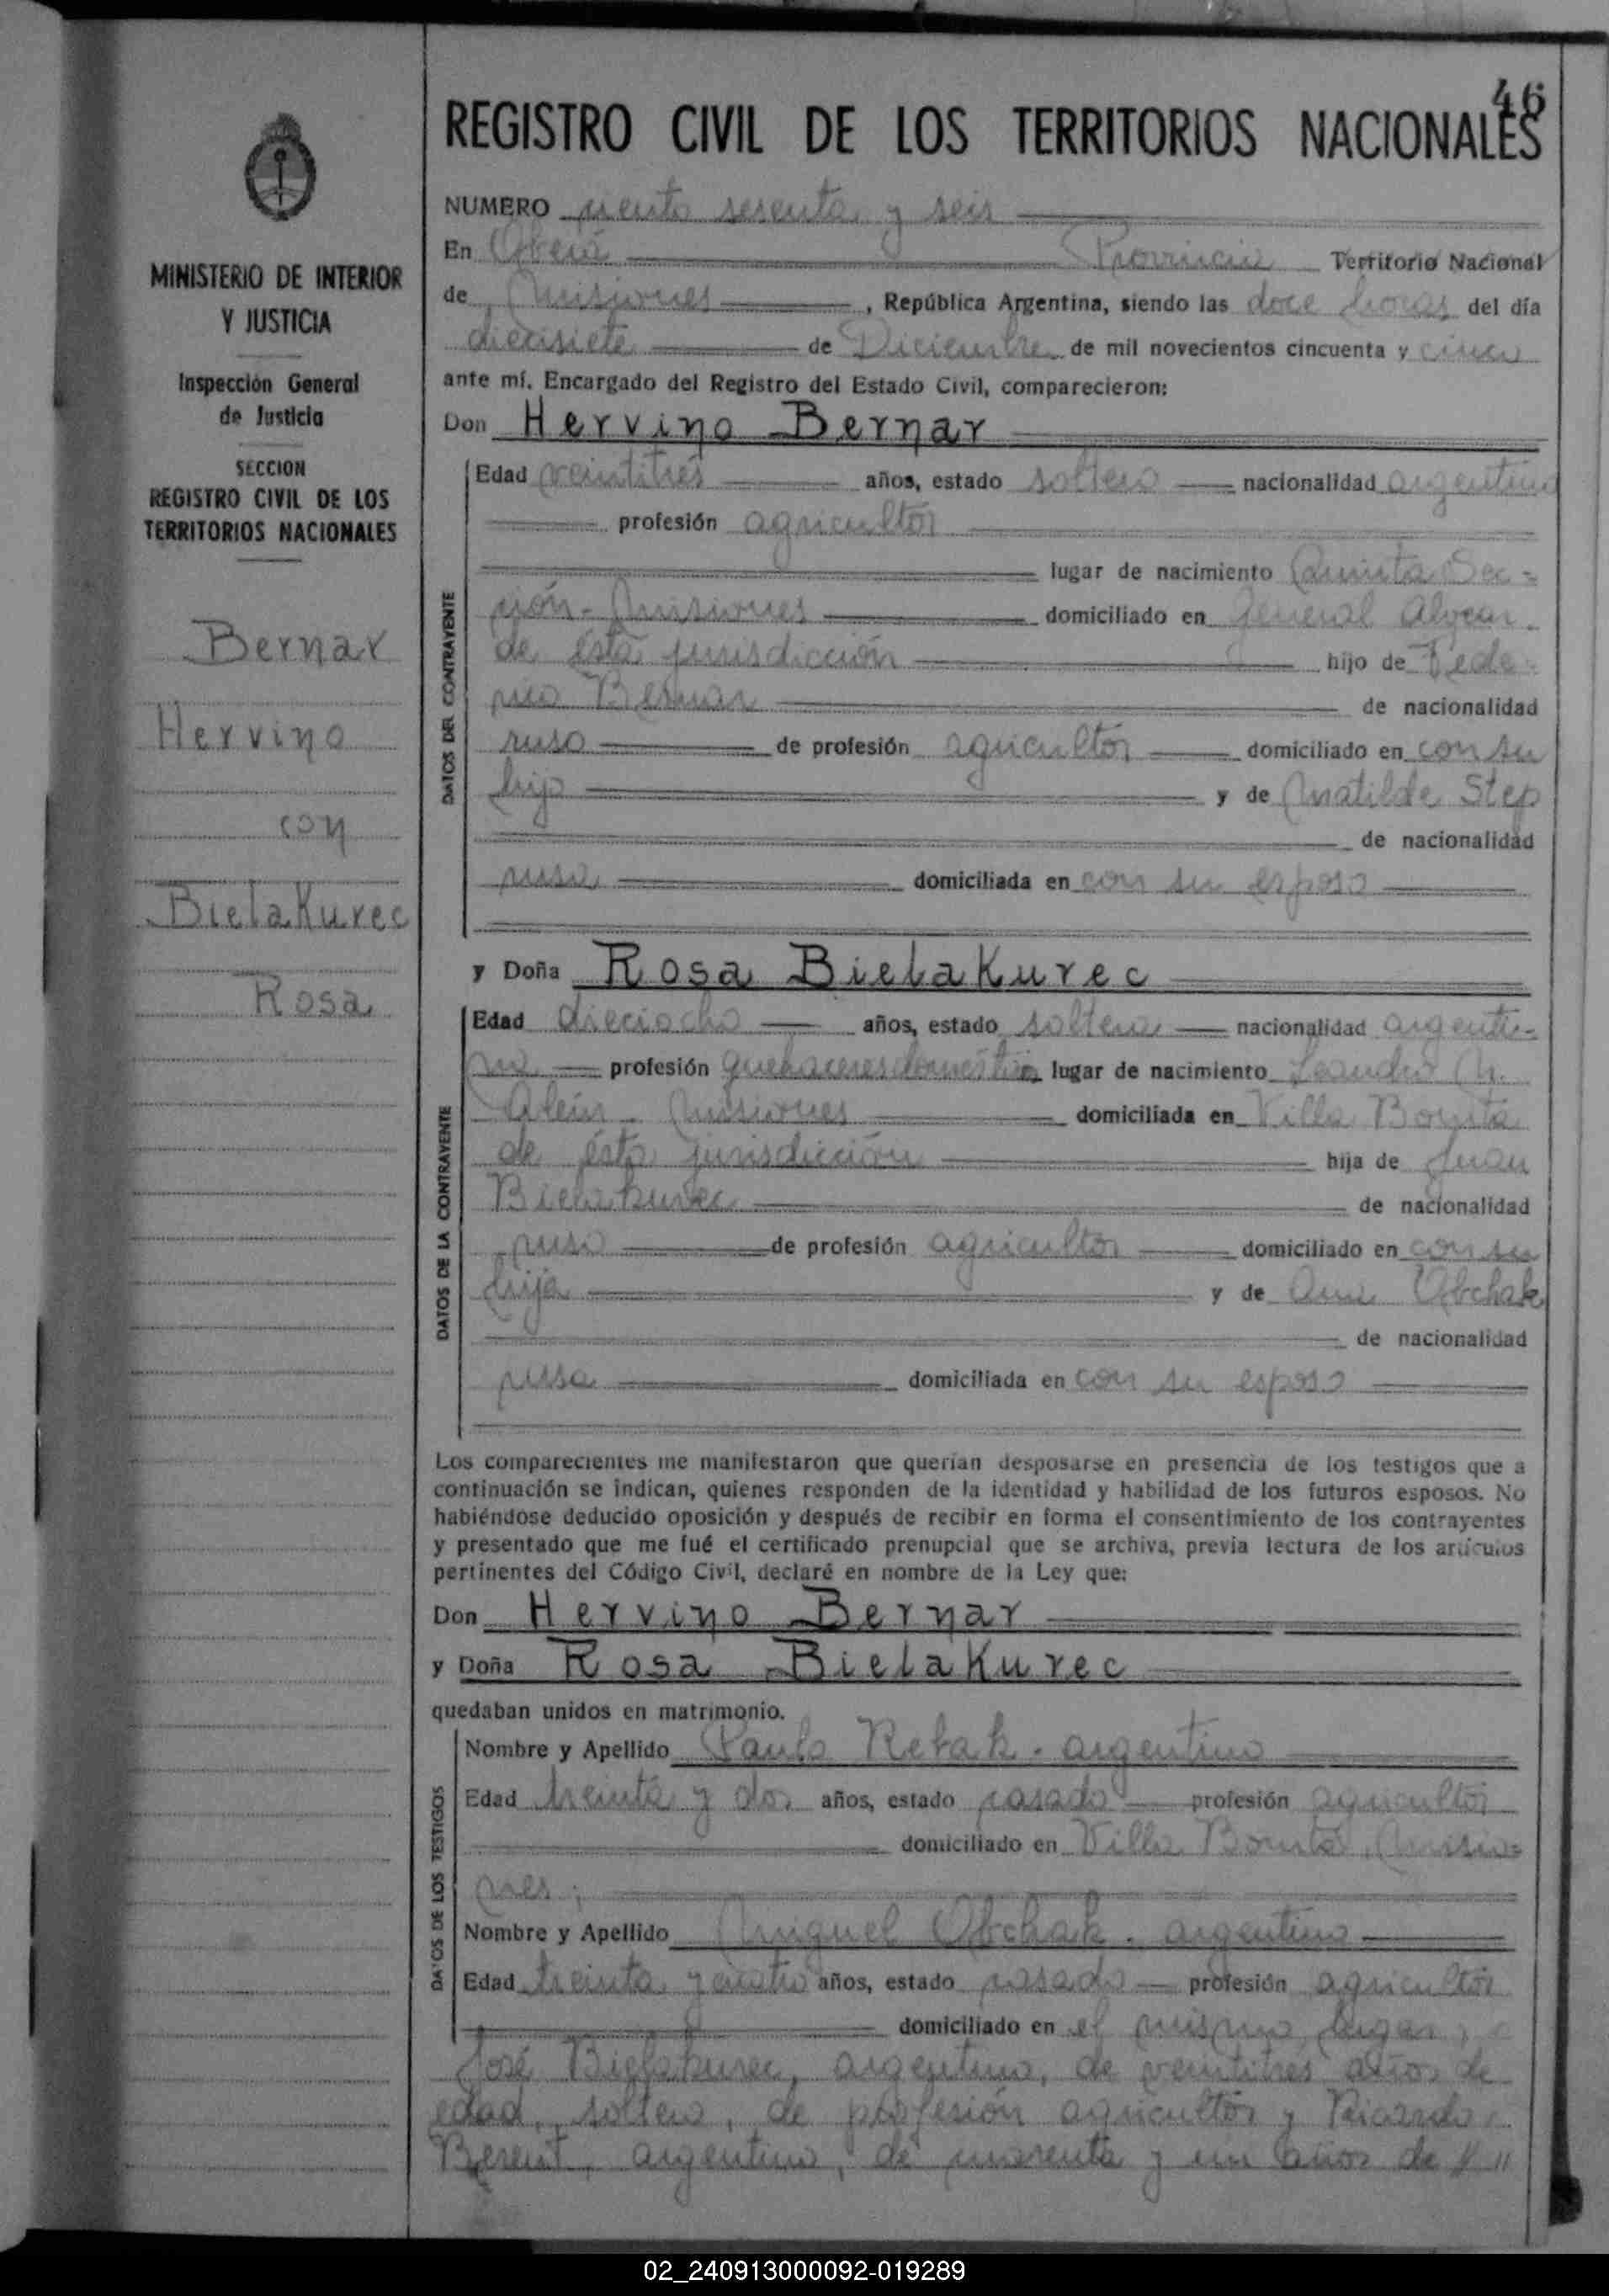 46
REGISTRO CIVIL DE LOS TERRITORIOS NACIONALES
MINISTERIO DE INTERIOR
Y JUSTICIA
Inspección General
de Justicia
SECCION
REGISTRO CIVIL DE LOS
TERRITORIOS NACIONALES
Bernar
Hervino
con
Bielakurec
Rosa
NUMERO ciento sesenta y seis
En Oberá Provincia Territorio Nacional
de Misiones, República Argentina, siendo las doce horas del día
diecisiete de Diciembre de mil novecientos cincuenta y cinco
ante mí, Encargado del Registro del Estado Civil, comparecieron:
Don Hervino Bernar
DATOS DEL CONTRAYENTE
Edad veintitrés años, estado soltero nacionalidad argentino
profesión agricultor
lugar de nacimiento Quinta Sec=
ción-Misiones domiciliado en General Alvear.
de ésta jurisdicción hijo de Fede=
rico Bernar de nacionalidad
ruso de profesión agricultor domiciliado en con su
hijo y de Matilde Step
de nacionalidad
rusa domiciliada en con su esposo
y Doña Rosa Bielakurec
DATOS DE LA CONTRAYENTE
Edad dieciocho años, estado soltera nacionalidad argenti=
na profesión quehaceres domésticos lugar de nacimiento Leandro N.
Alem - Misiones domiciliada en Villa Bonita
de ésta jurisdicción hija de Juan
Bielakurec de nacionalidad
ruso de profesión agricultor domiciliado en con su
hija y de Ana Obchak
de nacionalidad
rusa domiciliada en con su esposo
Los comparecientes me manifestaron que querían desposarse en presencia de los testigos que a
continuación se indican, quienes responden de la identidad y habilidad de los futuros esposos. No
habiéndose deducido oposición y después de recibir en forma el consentimiento de los contrayentes
y presentado que me fué el certificado prenupcial que se archiva, previa lectura de los artículos
pertinentes del Código Civil, declaré en nombre de la Ley que:
Don Hervino Bernar
y Doña Rosa Bielakurec
quedaban unidos en matrimonio.
DATOS DE LOS TESTIGOS
Nombre y Apellido Paulo Rebak - argentino
Edad treinta y dos años, estado casado profesión agricultor
domiciliado en Villa Bonita, Misio=
nes;
Nombre y Apellido Miguel Obchak - argentino
Edad treinta y cuatro años, estado casado profesión agricultor
domiciliado en el mismo lugar,
José Bielakurec, argentino, de veintitrés años de
edad, soltero, de profesión agricultor y Ricardo
Berent, argentino, de cuarenta y un años de //"
02_240913000092-019289